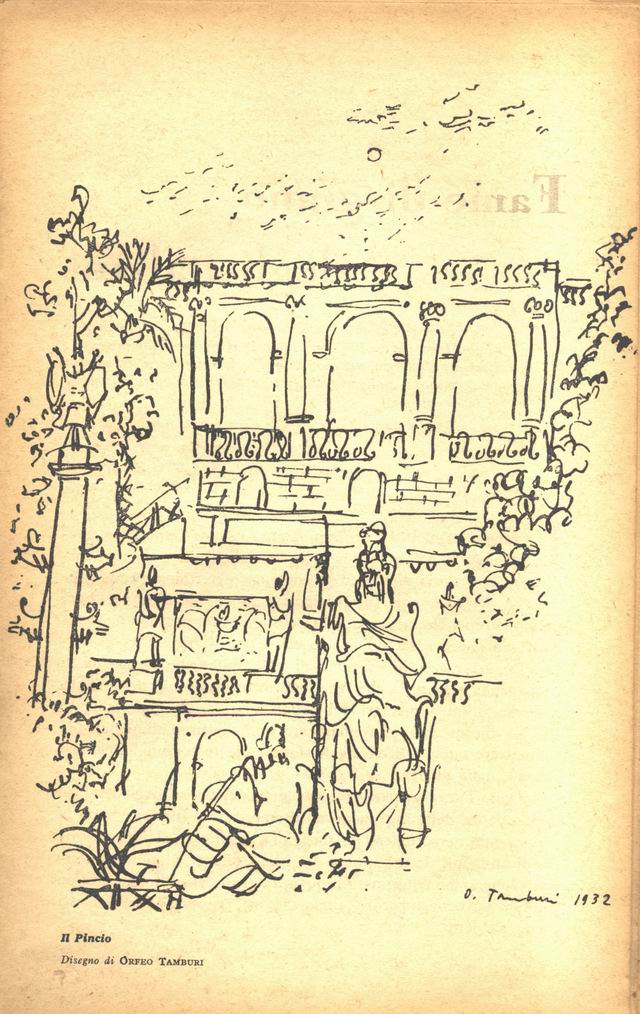 O. Tamburi 1932
Il Pincio
Disegno di ORFEO TAMBURI